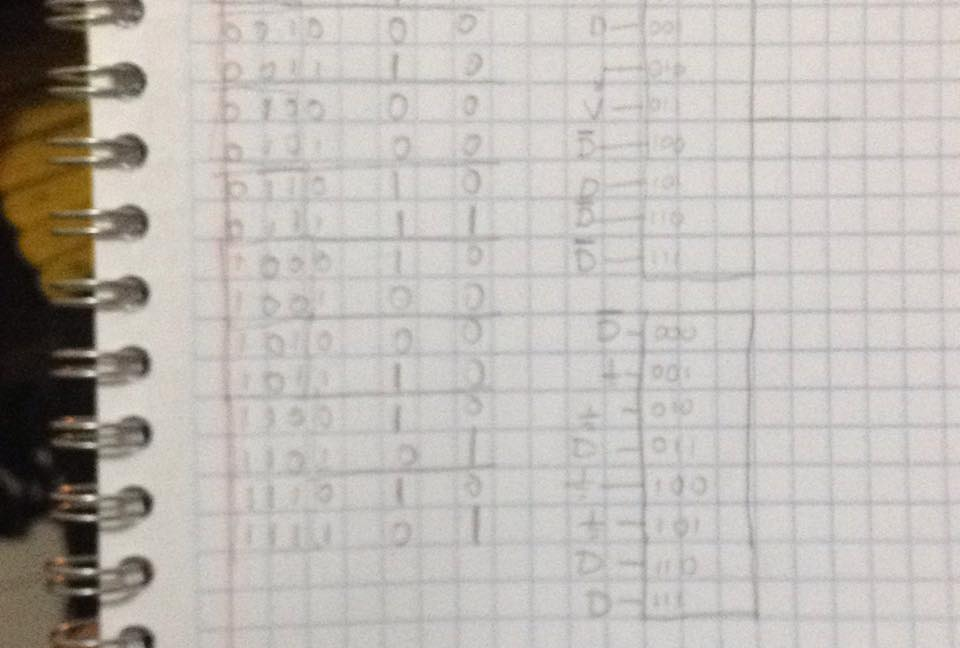 0010 0 0
0011 1 0
0100 0 0
0101 0 0
0110 1 0
0111 1 1
1000 1 0
1001 0 0
1010 0 0
1011 1 0
1100 1 0
1101 0 1
1110 1 0
1111 0 1
D 001
010
V 011
D̅ 100
D 101
D̅ 110
D̅ 111
D̅ 000
+ 001
010
D 011
100
+ 101
D 110
D 111